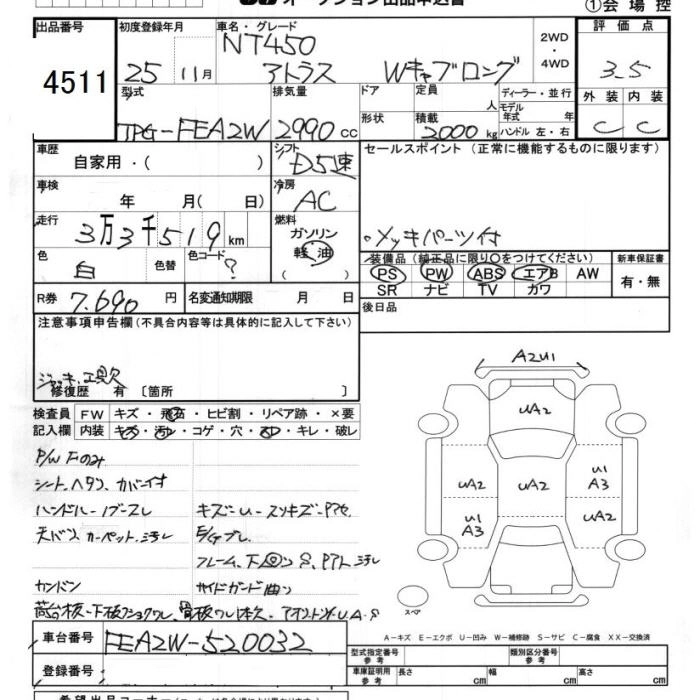 オークション出品申込書
①会場控
出品番号 初度登録年月 車名・グレード 2WD・4WD 評価点
4511 25 11月 NT450 アトラス Wキャブロング 3.5
型式 排気量 ドア 定員 人 ディーラー・並行 外装 内装
TPG-FEA2W 2990 cc 形状 積載 2000kg モデル年式 年 C C
ハンドル 左・右
車歴 自家用・( ) シフト D5速 セールスポイント (正常に機能するものに限ります)
車検 年 月(日) 冷房 AC
走行 3万3千519km 燃料 ガソリン 軽油 ( )
・メッキパーツ付
色 白 色替 色コード ?
装備品 (純正品に限り○をつけてください) 新車保証書
PS PW ABS エアB AW 有・無
SR ナビ TV カワ
R券 7.690 円 名変通知期限 月 日 後日品
注意事項申告欄(不具合内容等は具体的に記入して下さい)
ジャッキ、工具欠
修復歴 有 〔箇所 〕
検査員 FW キズ・飛石・ヒビ割・リペア跡・×要
記入欄 内装 キズ・汚れ・コゲ・穴・欠・キレ・破レ
P/W Fのみ
シート、ヘタリ、カバー付
ハンドル
天バリ、カーペット、汚レ
フレーム、下
カンドン サイドガード曲り
A2U1
UA2
UA2 UA2 U1 A3
U1 A3 UA2
スペア
A-キズ E-エクボ U-凹み W-補修跡 S-サビ C-腐食 XX-交換済
車台番号 FEA2W-520032
型式指定番号 参考 類別区分番号 参考
登録番号
車庫証明用 参考 長さ cm 幅 cm 高さ cm